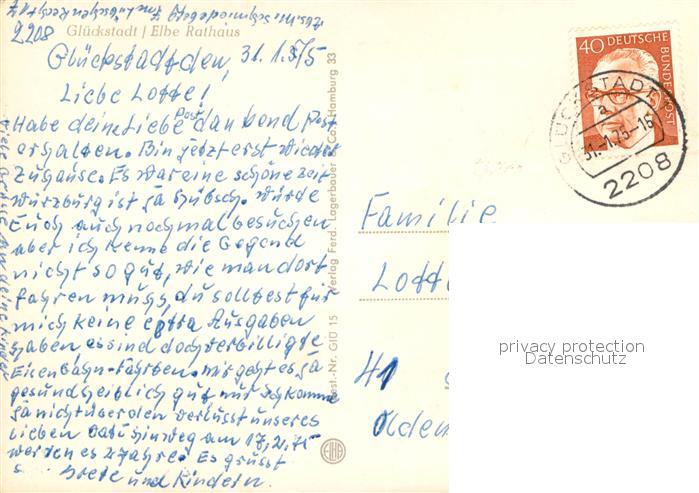 2208
Glückstadt / Elbe Rathaus
Glückstadt den, 31.1.75
Liebe Lotte!
Habe deine Liebe Post dankend
erhalten. Bin jetzt erst wieder
zuhause. Es war eine schöne Zeit
Würzburg ist ja hübsch. Würde
Euch auch noch mal besuchen
aber ich kenne die Gegend
nicht so gut, wie man dort
fahren muss, du solltest für
mich keine extra Ausgaben
haben, es sind doch verbilligte
Eisenbahn-Fahrten. Mir geht es ja
gesundheitlich gut nur ich komme
ja nicht über den verlusst unseres
lieben hinweg am 17.2.75
werden es 2 Jahre. Es grüsst
Grete und Kindern.
Viele Grüsse an deine Kinder
Best.-Nr. Glü 15 Verlag Ferd. Lagerbauer & Co., Hamburg 33
EIHA
40 DEUTSCHE BUNDESPOST
GLÜCKSTADT
a
31.-1.75-16
2208
Familie
Lotte
41
Olden
privacy protection
Datenschutz